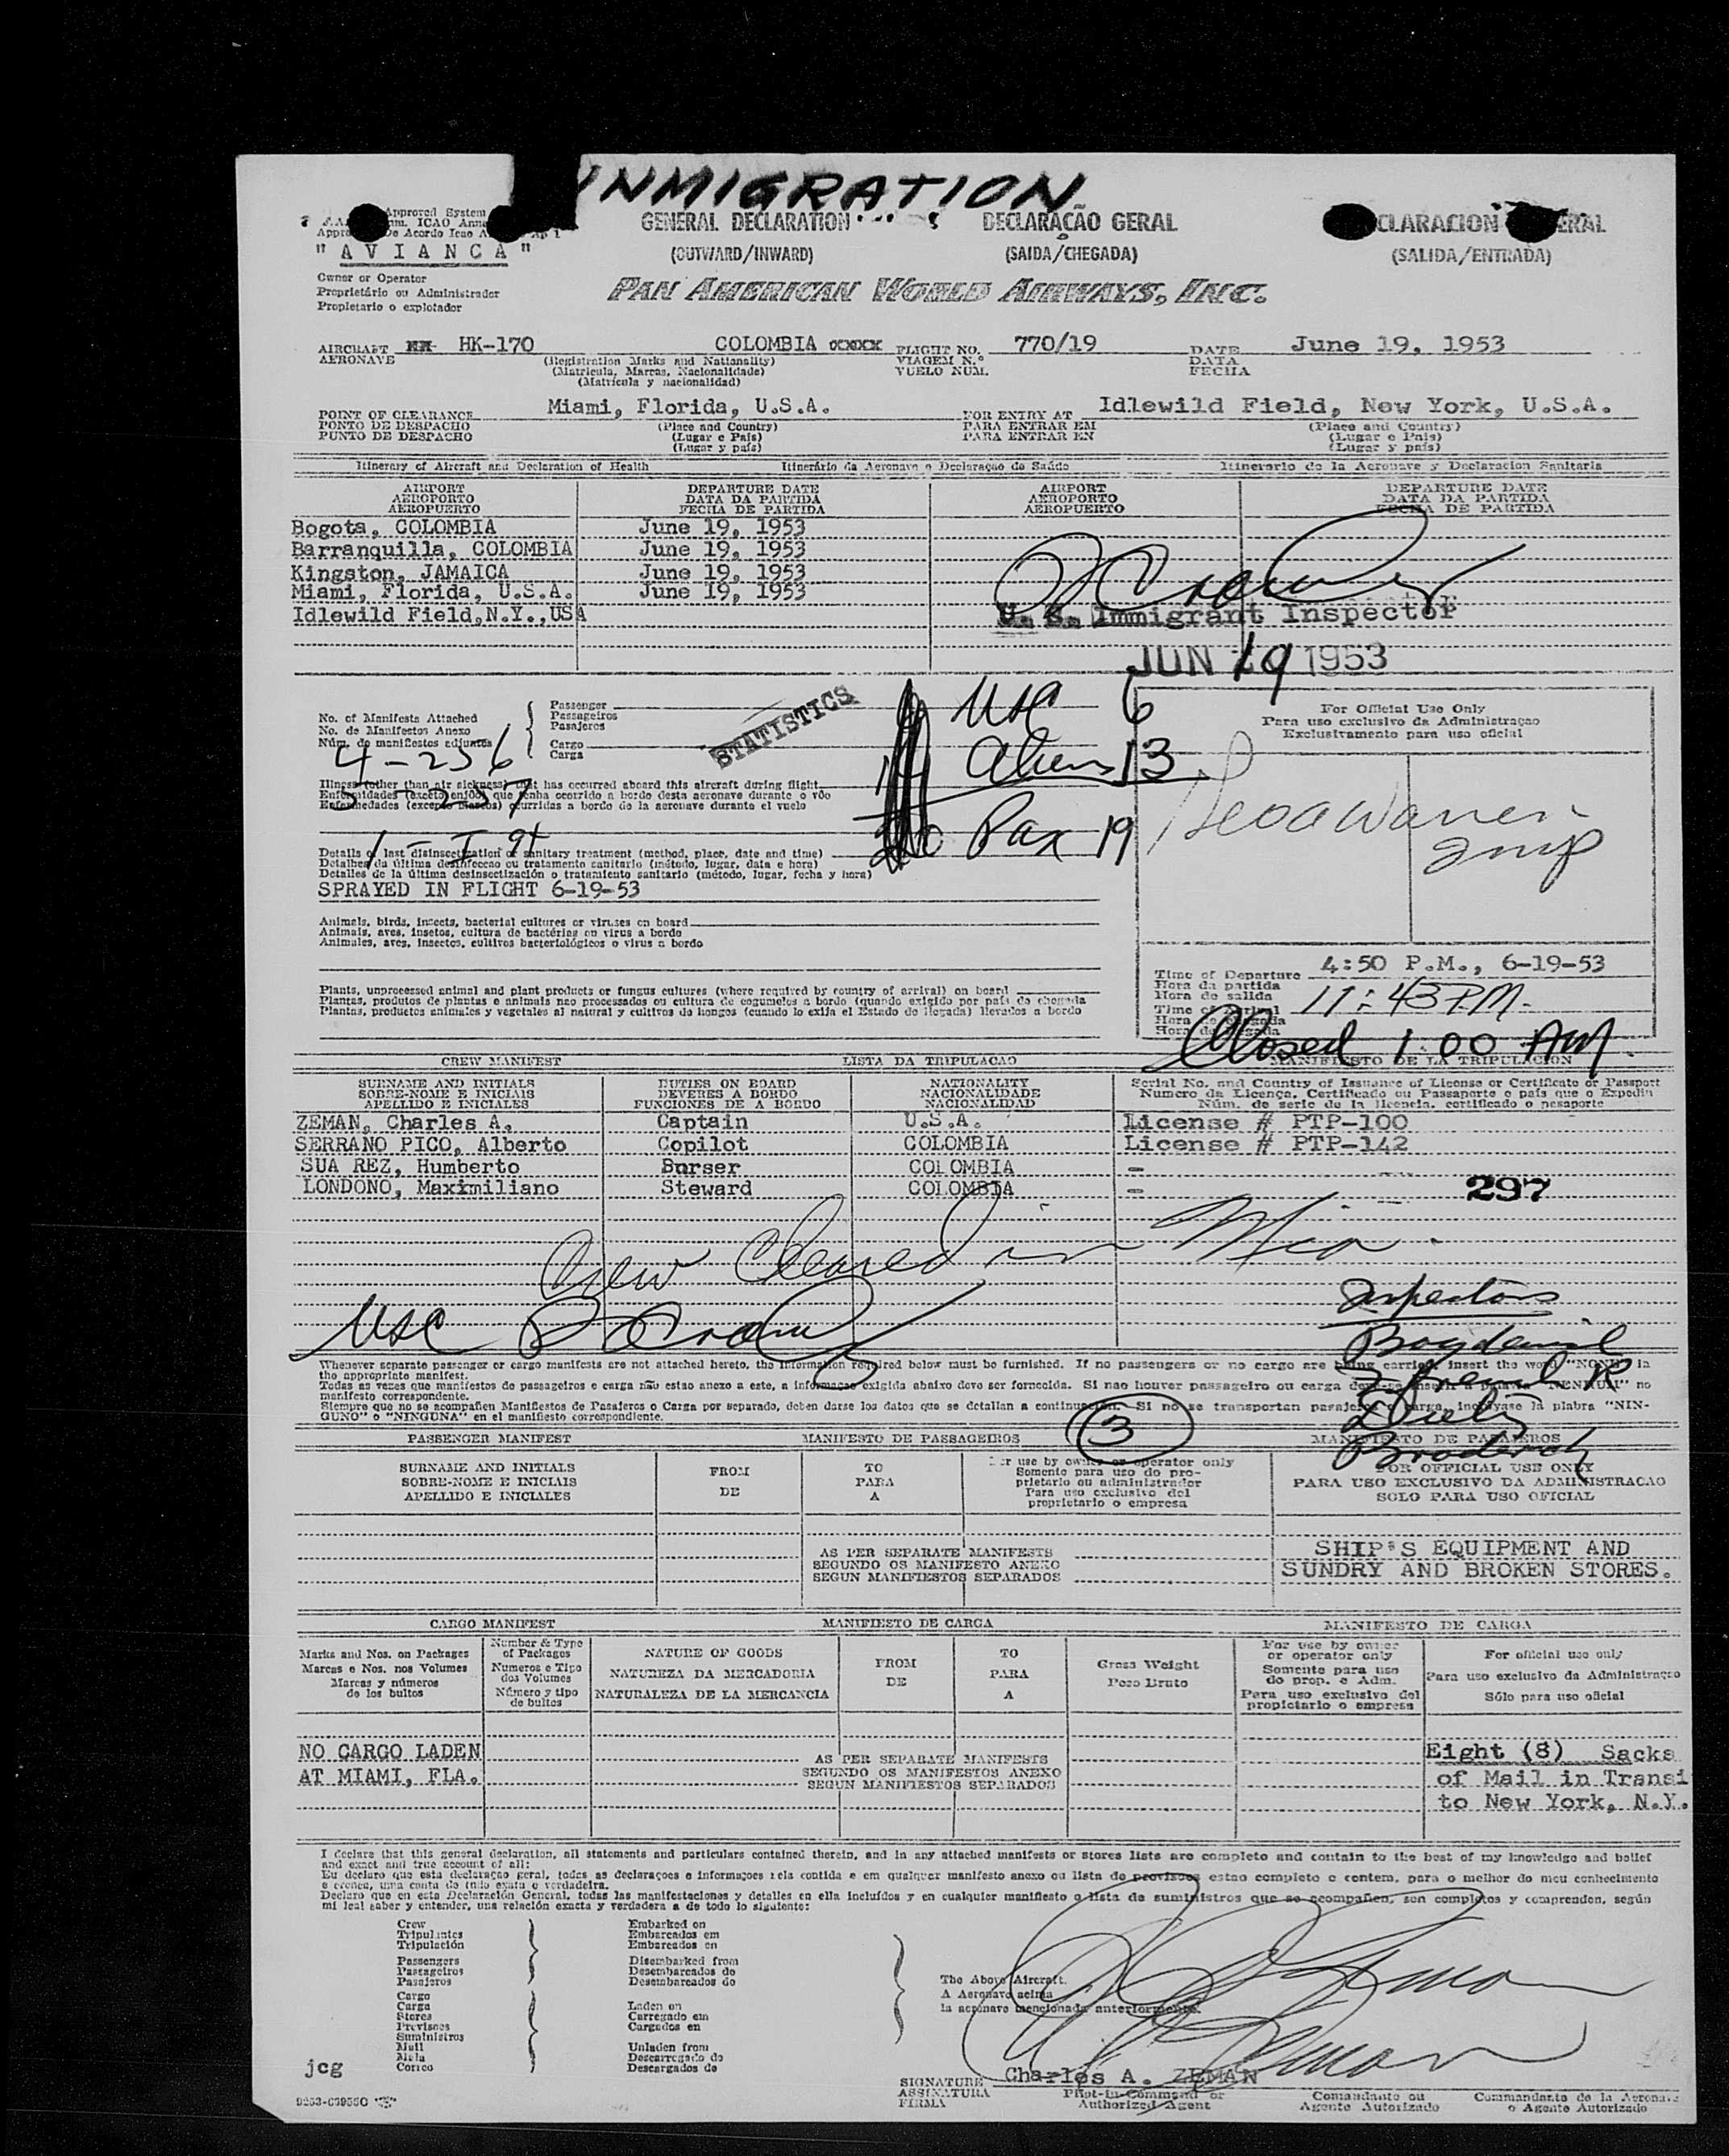 INMIGRATION
GENERAL DECLARATION
DECLARAÇÃO GERAL
CLARACION ERAL
(OUTWARD/INWARD)
(SAIDA/CHEGADA)
(SALIDA/ENTRADA)
Approved System
"AVIANCA"
Owner or Operator
Proprietário ou Administrador
Propietario o explotador
PAN AMERICAN WORLD AIRWAYS, INC.
AIRCRAFT HK-170 COLOMBIA FLIGHT NO. 770/19 DATE June 19, 1953
AERONAVE (Registration Marks and Nationality) VIAGEM N.º DATA
(Matrícula, Marcas, Nacionalidade) VUELO NUM. FECHA
(Matrícula y nacionalidad)
POINT OF CLEARANCE Miami, Florida, U.S.A. FOR ENTRY AT Idlewild Field, New York, U.S.A.
PONTO DE DESPACHO (Place and Country) PARA ENTRAR EM (Place and Country)
PUNTO DE DESPACHO (Lugar e País) PARA ENTRAR EN (Lugar e País)
(Lugar y país) (Lugar y país)
Itinerary of Aircraft and Declaration of Health Itinerário da Aeronave e Declaraçao de Saúde Itinerario de la Aeronave y Declaracion Sanitaria
AIRPORT DEPARTURE DATE AIRPORT DEPARTURE DATE
AEROPORTO DATA DA PARTIDA AEROPORTO DATA DA PARTIDA
AEROPUERTO FECHA DE PARTIDA AEROPUERTO FECHA DE PARTIDA
Bogota, COLOMBIA June 19, 1953
Barranquilla, COLOMBIA June 19, 1953
Kingston, JAMAICA June 19, 1953
Miami, Florida, U.S.A. June 19, 1953
Idlewild Field,N.Y.,USA
U. S. Immigrant Inspector
JUN 19 1953
No. of Manifests Attached
No. de Manifestos Anexo
Núm. de manifiestos adjuntos
Passenger
Passageiros
Pasajeros
Cargo
Carga
STATISTICS
USC 6
Aliens 13
Pax 19
4-256
5-257
For Official Use Only
Para uso exclusivo da Administraçao
Exclusivamente para uso oficial
Illness (other than air sickness) that has occurred aboard this aircraft during flight
Enfermidades (exceto enjôo) que tenha ocorrido a bordo desta aeronave durante o vôo
Enfermedades (excepto mareos) ocurridas a bordo de la aeronave durante el vuelo
Details of last disinsectization or sanitary treatment (method, place, date and time)
Detalhes da última desinfeccao ou tratamento sanitario (método, lugar, data e hora)
Detalles de la última desinsectización o tratamiento sanitario (método, lugar, fecha y hora)
SPRAYED IN FLIGHT 6-19-53
Animals, birds, insects, bacterial cultures or viruses on board
Animais, aves, insetos, cultura de bactérias ou virus a bordo
Animales, aves, insectos, cultivos bacteriológicos o virus a bordo
Plants, unprocessed animal and plant products or fungus cultures (where required by country of arrival) on board
Plantas, produtos de plantas e animais nao processados ou cultura de cogumelos a bordo (quando exigido por país de chegada
Plantas, productos animales y vegetales al natural y cultivos de hongos (cuando lo exija el Estado de llegada) llevados a bordo
Time of Departure 4:50 P.M., 6-19-53
Hora da partida
Hora de salida
Time of Arrival 11:43 P.M.
Closed 1:00 AM
CREW MANIFEST LISTA DA TRIPULACAO MANIFIESTO DE LA TRIPULACION
SURNAME AND INITIALS DUTIES ON BOARD NATIONALITY Serial No. and Country of Issuance of License or Certificate or Passport
SOBRE-NOME E INICIAIS DEVERES A BORDO NACIONALIDADE Numero da Licença, Certificado ou Passaporte o país que o Expediu
APELLIDO E INICIALES FUNCIONES DE A BORDO NACIONALIDAD Núm. de serie de la licencia, certificado o pasaporte
ZEMAN, Charles A. Captain U.S.A. License # PTP-100
SERRANO PICO, Alberto Copilot COLOMBIA License # PTP-142
SUA REZ, Humberto Burser COLOMBIA -
LONDONO, Maximiliano Steward COLOMBIA -
297
Crew Cleared in Mia.
USC
Inspectors
Broderick
Whenever separate passenger or cargo manifests are not attached hereto, the information required below must be furnished. If no passengers or no cargo are being carried, insert the word "NONE" in
the appropriate manifest.
Todas as vezes que manifestos de passageiros e carga não estao anexo a este, a informaçao exigida abaixo deve ser fornecida. Si nao houver passageiro ou carga deve-se inserir a palavra "NENHUM" no
manifesto correspondente.
Siempre que no se acompañen Manifiestos de Pasajeros o Carga por separado, deben darse los datos que se detallan a continuación. Si no se transportan pasajeros o carga, inclúyase la plabra "NIN-
GUNO" o "NINGUNA" en el manifiesto correspondiente.
3
PASSENGER MANIFEST MANIFESTO DE PASSAGEIROS MANIFIESTO DE PASAJEROS
SURNAME AND INITIALS FROM TO For use by owner or operator only FOR OFFICIAL USE ONLY
SOBRE-NOME E INICIAIS DE PARA Somente para uso do pro- PARA USO EXCLUSIVO DA ADMINISTRACAO
APELLIDO E INICIALES A prietario ou administrador SOLO PARA USO OFICIAL
Para uso exclusivo del
proprietario o empresa
AS PER SEPARATE MANIFESTS
SEGUNDO OS MANIFESTO ANEXO
SEGUN MANIFIESTOS SEPARADOS
SHIP'S EQUIPMENT AND
SUNDRY AND BROKEN STORES.
CARGO MANIFEST MANIFIESTO DE CARGA MANIFESTO DE CARGA
Marks and Nos. on Packages
Marcas e Nos. nos Volumes
Marcas y números
de los bultos
Number & Type
of Packages
Numeros e Tipo
dos Volumes
Número y tipo
de bultos
NATURE OF GOODS
NATUREZA DA MERCADORIA
NATURALEZA DE LA MERCANCIA
FROM
DE
TO
PARA
A
Gross Weight
Peso Bruto
For use by owner
or operator only
Somente para uso
do prop. e Adm.
Para uso exclusivo del
propietario o empresa
For official use only
Para uso exclusivo da Administraçao
Sólo para uso oficial
NO CARGO LADEN
AT MIAMI, FLA.
AS PER SEPARATE MANIFESTS
SEGUNDO OS MANIFESTOS ANEXO
SEGUN MANIFIESTOS SEPARADOS
Eight (8) Sacks
of Mail in Transi
to New York, N.Y.
I declare that this general declaration, all statements and particulars contained therein, and in any attached manifests or stores lists are complete and contain to the best of my knowledge and belief
and exact and true account of all:
Eu declaro que esta declaraçao geral, todas as declaraçoes e informaçoes nela contida e em qualquer manifesto anexo ou lista de provisoes estao completo e contem, para o melhor do meu conhecimento
e crenca, uma conta de tudo exata e verdadeira.
Declaro que en esta Declaración General, todas las manifestaciones y detalles en ella incluídos y en cualquier manifiesto o lista de suministros que se acompañen, son completos y comprenden, según
mi leal saber y entender, una relación exacta y verdadera a de todo lo siguiente:
Crew
Tripulantes
Tripulación
Passengers
Passageiros
Pasajeros
Cargo
Carga
Stores
Previsoes
Suministros
Mail
Mala
Correo
Embarked on
Embarcados em
Embarcados en
Disembarked from
Desembarcados do
Desembarcados de
Laden on
Carregado em
Cargados en
Unladen from
Descarregado do
Descargados de
The Above Aircraft.
A Aeronave acima
la aeronave mencionada anteriormente.
jcg
SIGNATURE Charles A. ZEMAN
ASSINATURA Pilot-in-Command or Comandante ou Commandante de la Aeronave
FIRMA Authorized Agent Agente Autorizado o Agente Autorizado